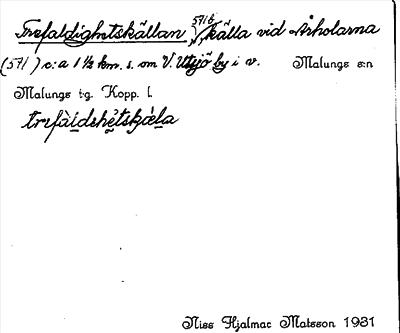 Trefaldighetskällan, källa vid Årholarna
571b
(571) c:a 1 ½ km. s. om V. Utsjö by i v. Malungs s:n
Malungs t:g. Kopp. l.
trefàidshètskjæ̀la
Nils Hjalmar Matsson 1931